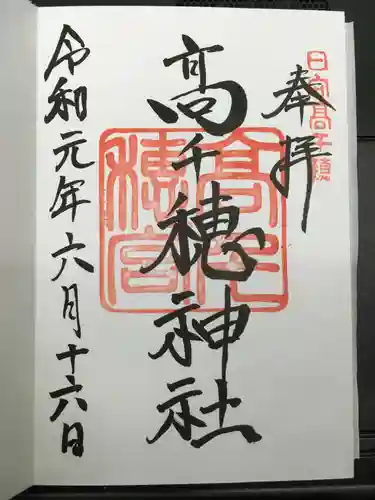 奉拝
日向高千穂
高千穂神社
高千穂宮
令和元年六月十六日